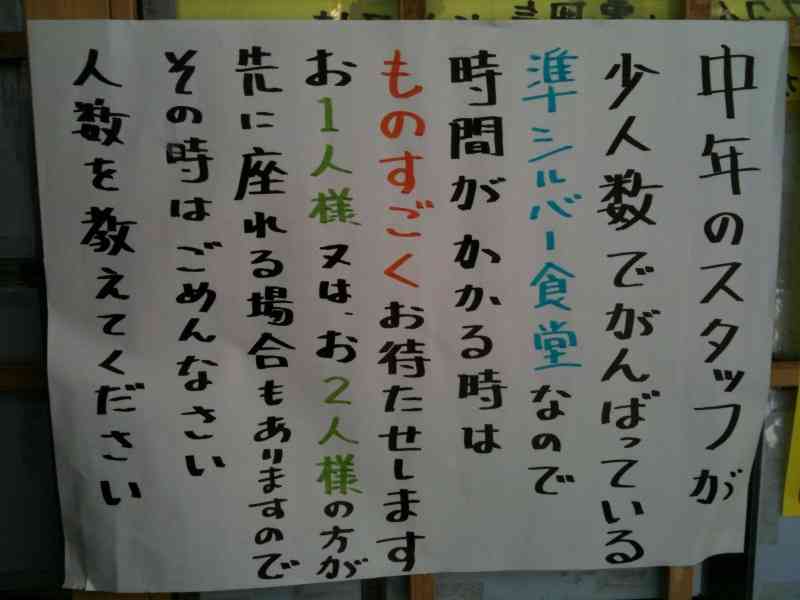 中年のスタッフが
少人数でがんばっている
準シルバー食堂なので
時間がかかる時は
ものすごくお待たせします
お1人様又は、お2人様の方が
先に座れる場合もありますので
その時はごめんなさい
人数を教えてください